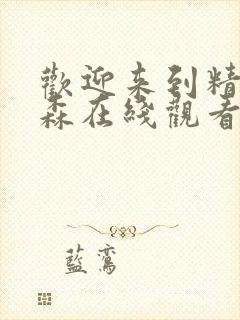 歡迎来到精
森在綫觀看
藍鸞